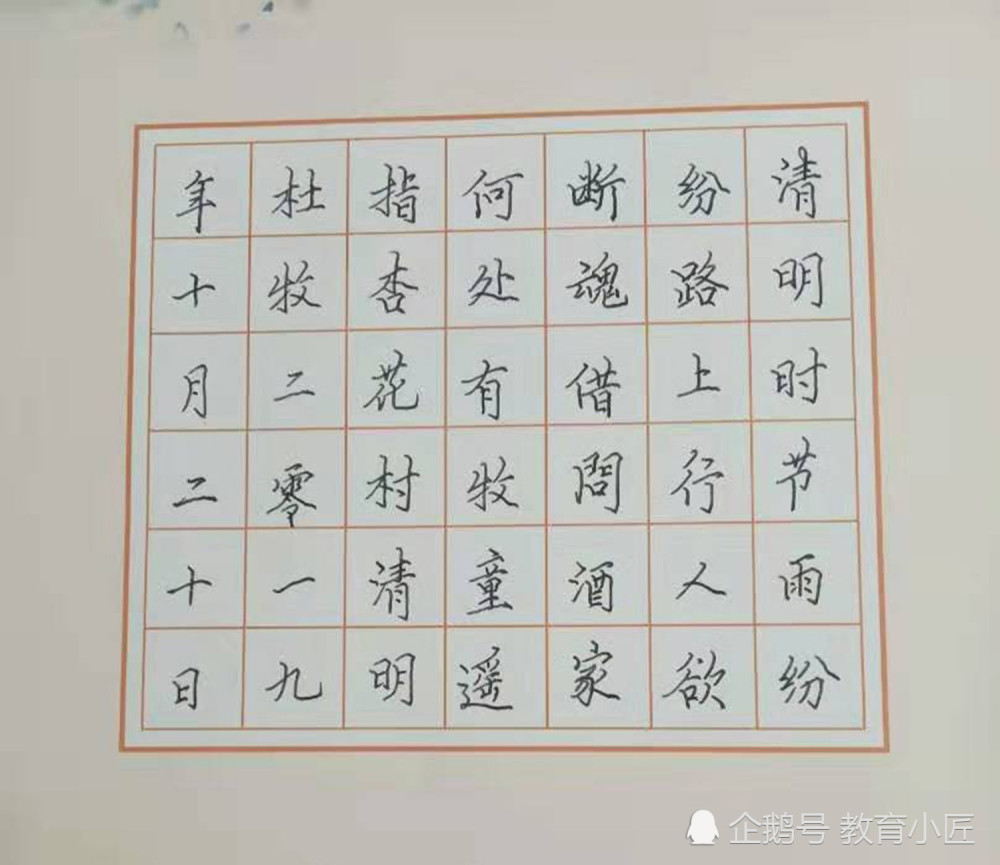 清明时节雨纷
纷路上行人欲
断魂借问酒家
何处有牧童遥
指杏花村清明
杜牧二零一九
年十月二十日
企鹅号 教育小匠